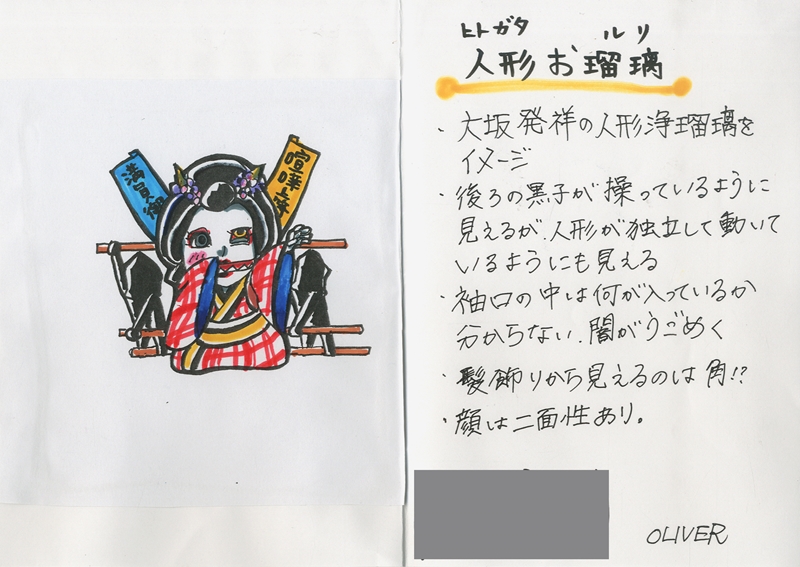 満員御
喧嘩上等
ヒトガタ ルリ
人形お瑠璃
・大坂発祥の人形浄瑠璃を
イメージ
・後ろの黒子が操っているように
見えるが、人形が独立して動いて
いるようにも見える
・袖口の中は何が入っているか
分からない、闇がうごめく
・髪飾りから見えるのは角!?
・顔は二面性あり。
OLIVER